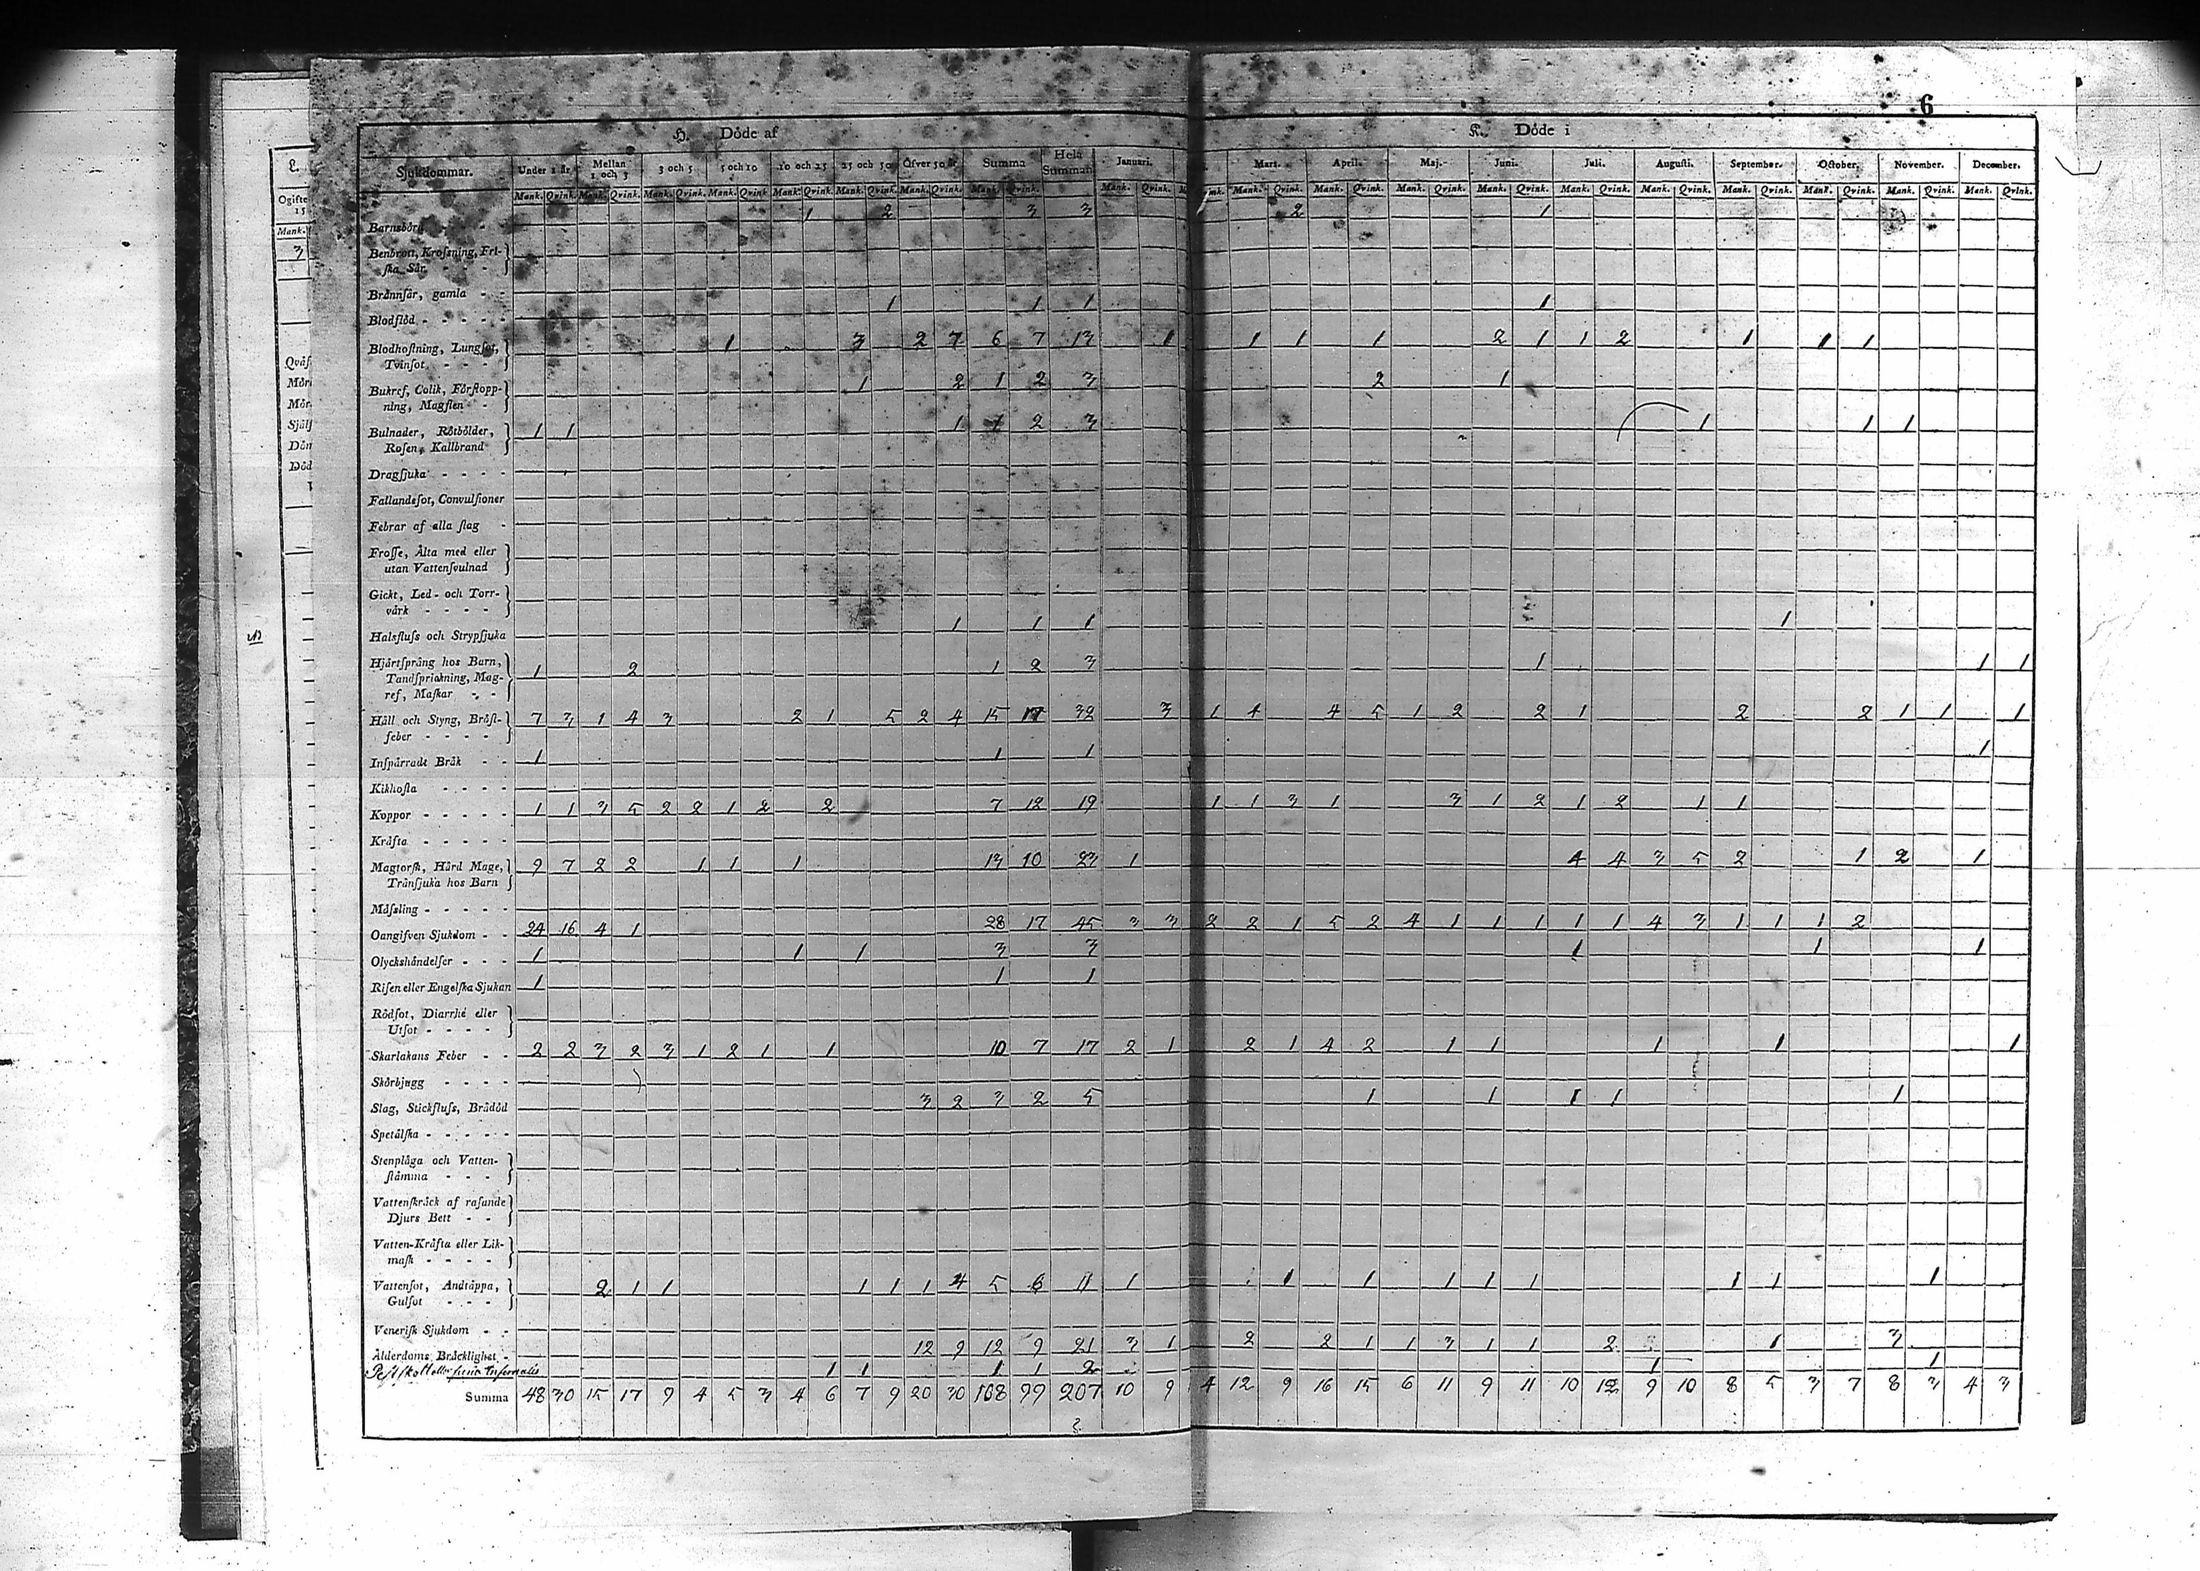 6
H. Döde af
K. Döde i
Sjukdommar. Under 1 år. Mellan 1 och 3 3 och 5 5 och 10 10 och 25 25 och 50 Öfver 50 år. Summa Hela Summan Januari. Mart. April. Maj. Juni. Juli. Augusti. September. October. November. December.
Mank. Qvink. Mank. Qvink. Mank. Qvink. Mank. Qvink. Mank. Qvink. Mank. Qvink. Mank. Qvink. Mank. Qvink. Mank. Qvink. Mank. Qvink. Mank. Qvink. Mank. Qvink. Mank. Qvink. Mank. Qvink. Mank. Qvink. Mank. Qvink. Mank. Qvink. Mank. Qvink. Mank. Qvink.
Barnsbörd 1 2 3 3 2 1
Benbrott, Krosning, Fri-
ska Sår.
Brånnsår, gamla
Blodflöd 1 1 1 1
Blodhostning, Lungsot, 1 3 2 7 6 7 13 1 1 1 1 2 1 1 2 1 1 1
Tvinsot
Bukref, Colik, Förstopp- 1 2 1 2 3 2 1
ning, Magsten
Bulnader, Rötbölder, 1 1 1 1 2 3 1 1 1
Rosen, Kallbrand
Dragsjuka
Fallandesot, Convulsioner
Febrar af alla slag
Frosse, Älta med eller
utan Vattensvulnad
Gickt, Led- och Torr-
värk
Halsfluss och Strypsjuka 1 1 1 1
Hjärtsprång hos Barn, 1 2 1 2 3 1 1 1
Tandsprickning, Mag-
ref, Maskar
Håll och Styng, Bröst- 7 3 1 4 3 2 1 5 2 4 15 17 32 3 1 4 4 5 1 2 2 1 2 2 1 1 1
feber
Inspärradt Bråk 1 1 1 1
Kikhosta
Koppor 1 1 3 5 2 2 1 2 2 7 12 19 1 1 3 1 3 1 2 1 2 1 1
Kräfta
Magtorsk, Hård Mage, 9 7 2 2 1 1 1 13 10 23 1 4 4 3 5 2 1 2 1
Trånsjuka hos Barn
Måssling
Oangifven Sjukdom 24 16 4 1 28 17 45 3 3 2 2 1 5 2 4 1 1 1 1 1 4 3 1 1 1 2
Olyckshändelser 1 1 1 3 3 1 1 1
Risen eller Engelska Sjukan 1 1 1
Rödsot, Diarrhé eller
Utsot
Skarlakans Feber 2 2 3 2 3 1 2 1 1 10 7 17 2 1 2 1 4 2 1 1 1 1 1
Skörbjugg
Slag, Stickfluss, Brådöd 3 2 3 2 5 1 1 1 1 1
Spetälska
Stenplåga och Vatten-
stämma
Vattenskräck af rasande
Djurs Bett
Vatten-Kräfta eller Lik-
mask
Vattensot, Andtäppa, 2 1 1 1 1 1 4 5 6 11 1 1 1 1 1 1 1 1 1
Gulsot
Venerisk Sjukdom
Ålderdoms Bräcklighet 12 9 12 9 21 3 1 2 2 1 1 3 1 1 2 1 3
infernalis 1 1 1 1 2 1 1
Summa 48 30 15 17 9 4 5 3 4 6 7 9 20 30 108 99 207 10 9 4 12 9 16 15 6 11 9 11 10 12 9 10 8 5 3 7 8 3 4 3